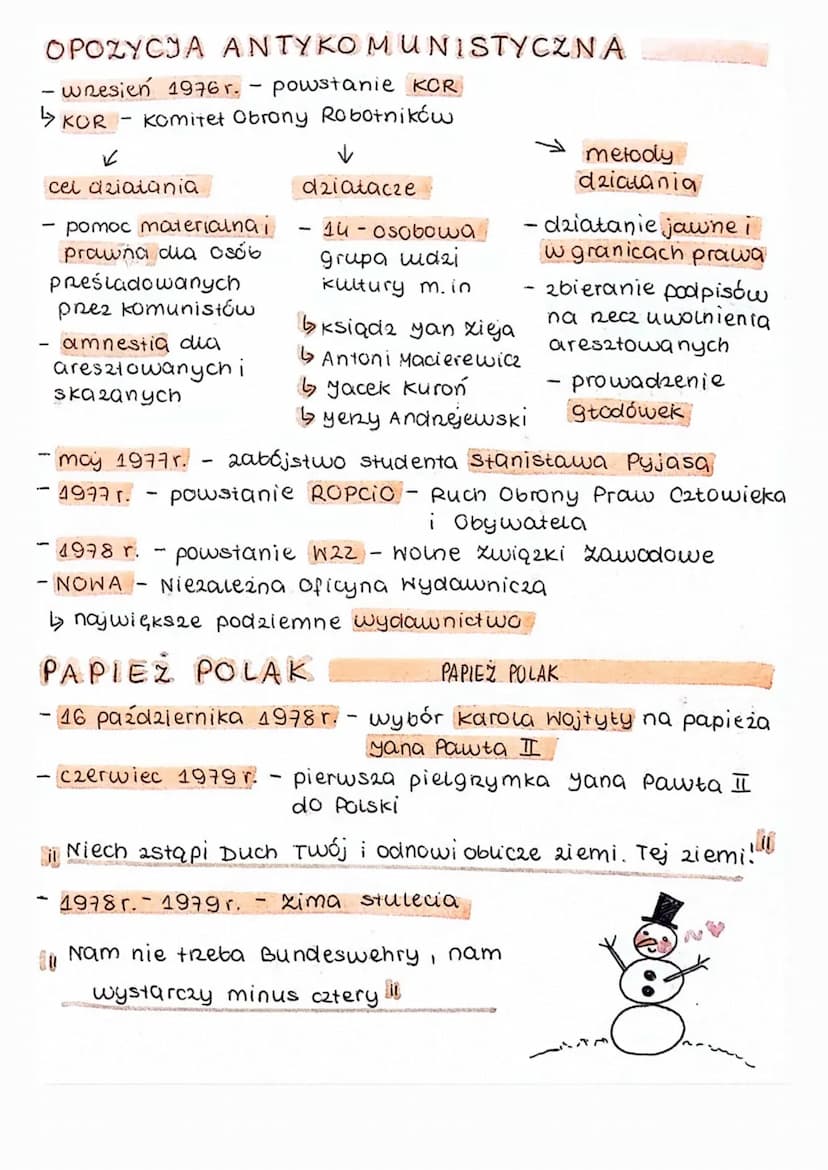 OPOZYCJA ANTYKOMUNISTYCZNA
- wrzesień 1976 r. - powstanie KOR
↳ KOR - Komitet Obrony Robotników
cel działania
- pomoc materialna i
prawna dla osób
prześladowanych
przez komunistów
- amnestia dla
aresztowanych i
skazanych
działacze
- 14-osobowa
grupa ludzi
kultury m.in
↳ ksiądz Jan Zieja
↳ Antoni Macierewicz
↳ Jacek Kuroń
↳ Jerzy Andrzejewski
→ metody
działania
- działanie jawne i
w granicach prawa
- zbieranie podpisów
na rzecz uwolnienia
aresztowanych
- prowadzenie
głodówek
- maj 1977r. - zabójstwo studenta Stanisława Pyjasa
- 1977 r. - powstanie ROPCiO - Ruch Obrony Praw Człowieka
i Obywatela
- 1978 r. - powstanie WZZ - Wolne Związki Zawodowe
- NOWA - Niezależna Oficyna Wydawnicza
↳ największe podziemne wydawnictwo
PAPIEŻ POLAK PAPIEŻ POLAK
- 16 października 1978 r. - wybór Karola Wojtyły na papieża
Jana Pawła II
- czerwiec 1979 r. - pierwsza pielgrzymka Jana Pawła II
do Polski
"Niech zstąpi Duch Twój i odnowi oblicze ziemi. Tej ziemi!"
- 1978 r. - 1979 r. - zima stulecia
"Nam nie trzeba Bundeswehry, nam
wystarczy minus cztery"